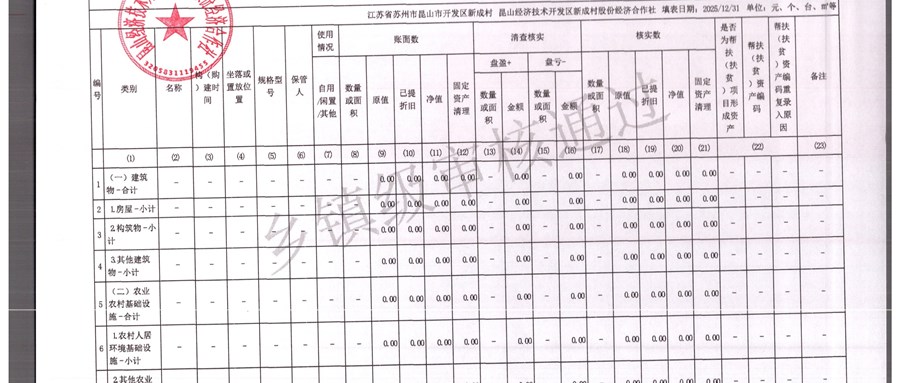 江苏省苏州市昆山市开发区新成村 昆山经济技术开发区新成村股份经济合作社 填表日期：2025/12/31 单位：元、个、台、㎡等
编号 类别 名称 构（购）建时间 坐落或置放位置 规格型号 保管人 使用情况 账面数 清查核实 核实数 是否为帮扶（扶贫）项目形成资产 帮扶（扶贫）资产编码 帮扶（扶贫）资产编码重复录入原因 备注
盘盈+ 盘亏-
自用/闲置/其他 数量或面积 原值 已提折旧 净值 固定资产清理 数量或面积 金额 数量或面积 金额 数量或面积 原值 已提折旧 净值 固定资产清理
(1) (2) (3) (4) (5) (6) (7) (8) (9) (10) (11) (12) (13) (14) (15) (16) (17) (18) (19) (20) (21) (22) (23)
1 （一）建筑物-合计 - - - - - - - 0.00 0.00 0.00 0.00 - 0.00 - 0.00 - 0.00 0.00 0.00 0.00 - - - -
2 1.房屋-小计 - - - - - - - 0.00 0.00 0.00 0.00 - 0.00 - 0.00 - 0.00 0.00 0.00 0.00 - - - -
3 2.构筑物-小计 - - - - - - - 0.00 0.00 0.00 0.00 - 0.00 - 0.00 - 0.00 0.00 0.00 0.00 - - - -
4 3.其他建筑物-小计 - - - - - - - 0.00 0.00 0.00 0.00 - 0.00 - 0.00 - 0.00 0.00 0.00 0.00 - - - -
5 （二）农业农村基础设施-合计 - - - - - - - 0.00 0.00 0.00 0.00 - 0.00 - 0.00 - 0.00 0.00 0.00 0.00 - - - -
6 1.农村人居环境基础设施-小计 - - - - - - - 0.00 0.00 0.00 0.00 - 0.00 - 0.00 - 0.00 0.00 0.00 0.00 - - - -
2.其他农业
乡镇级审核通过